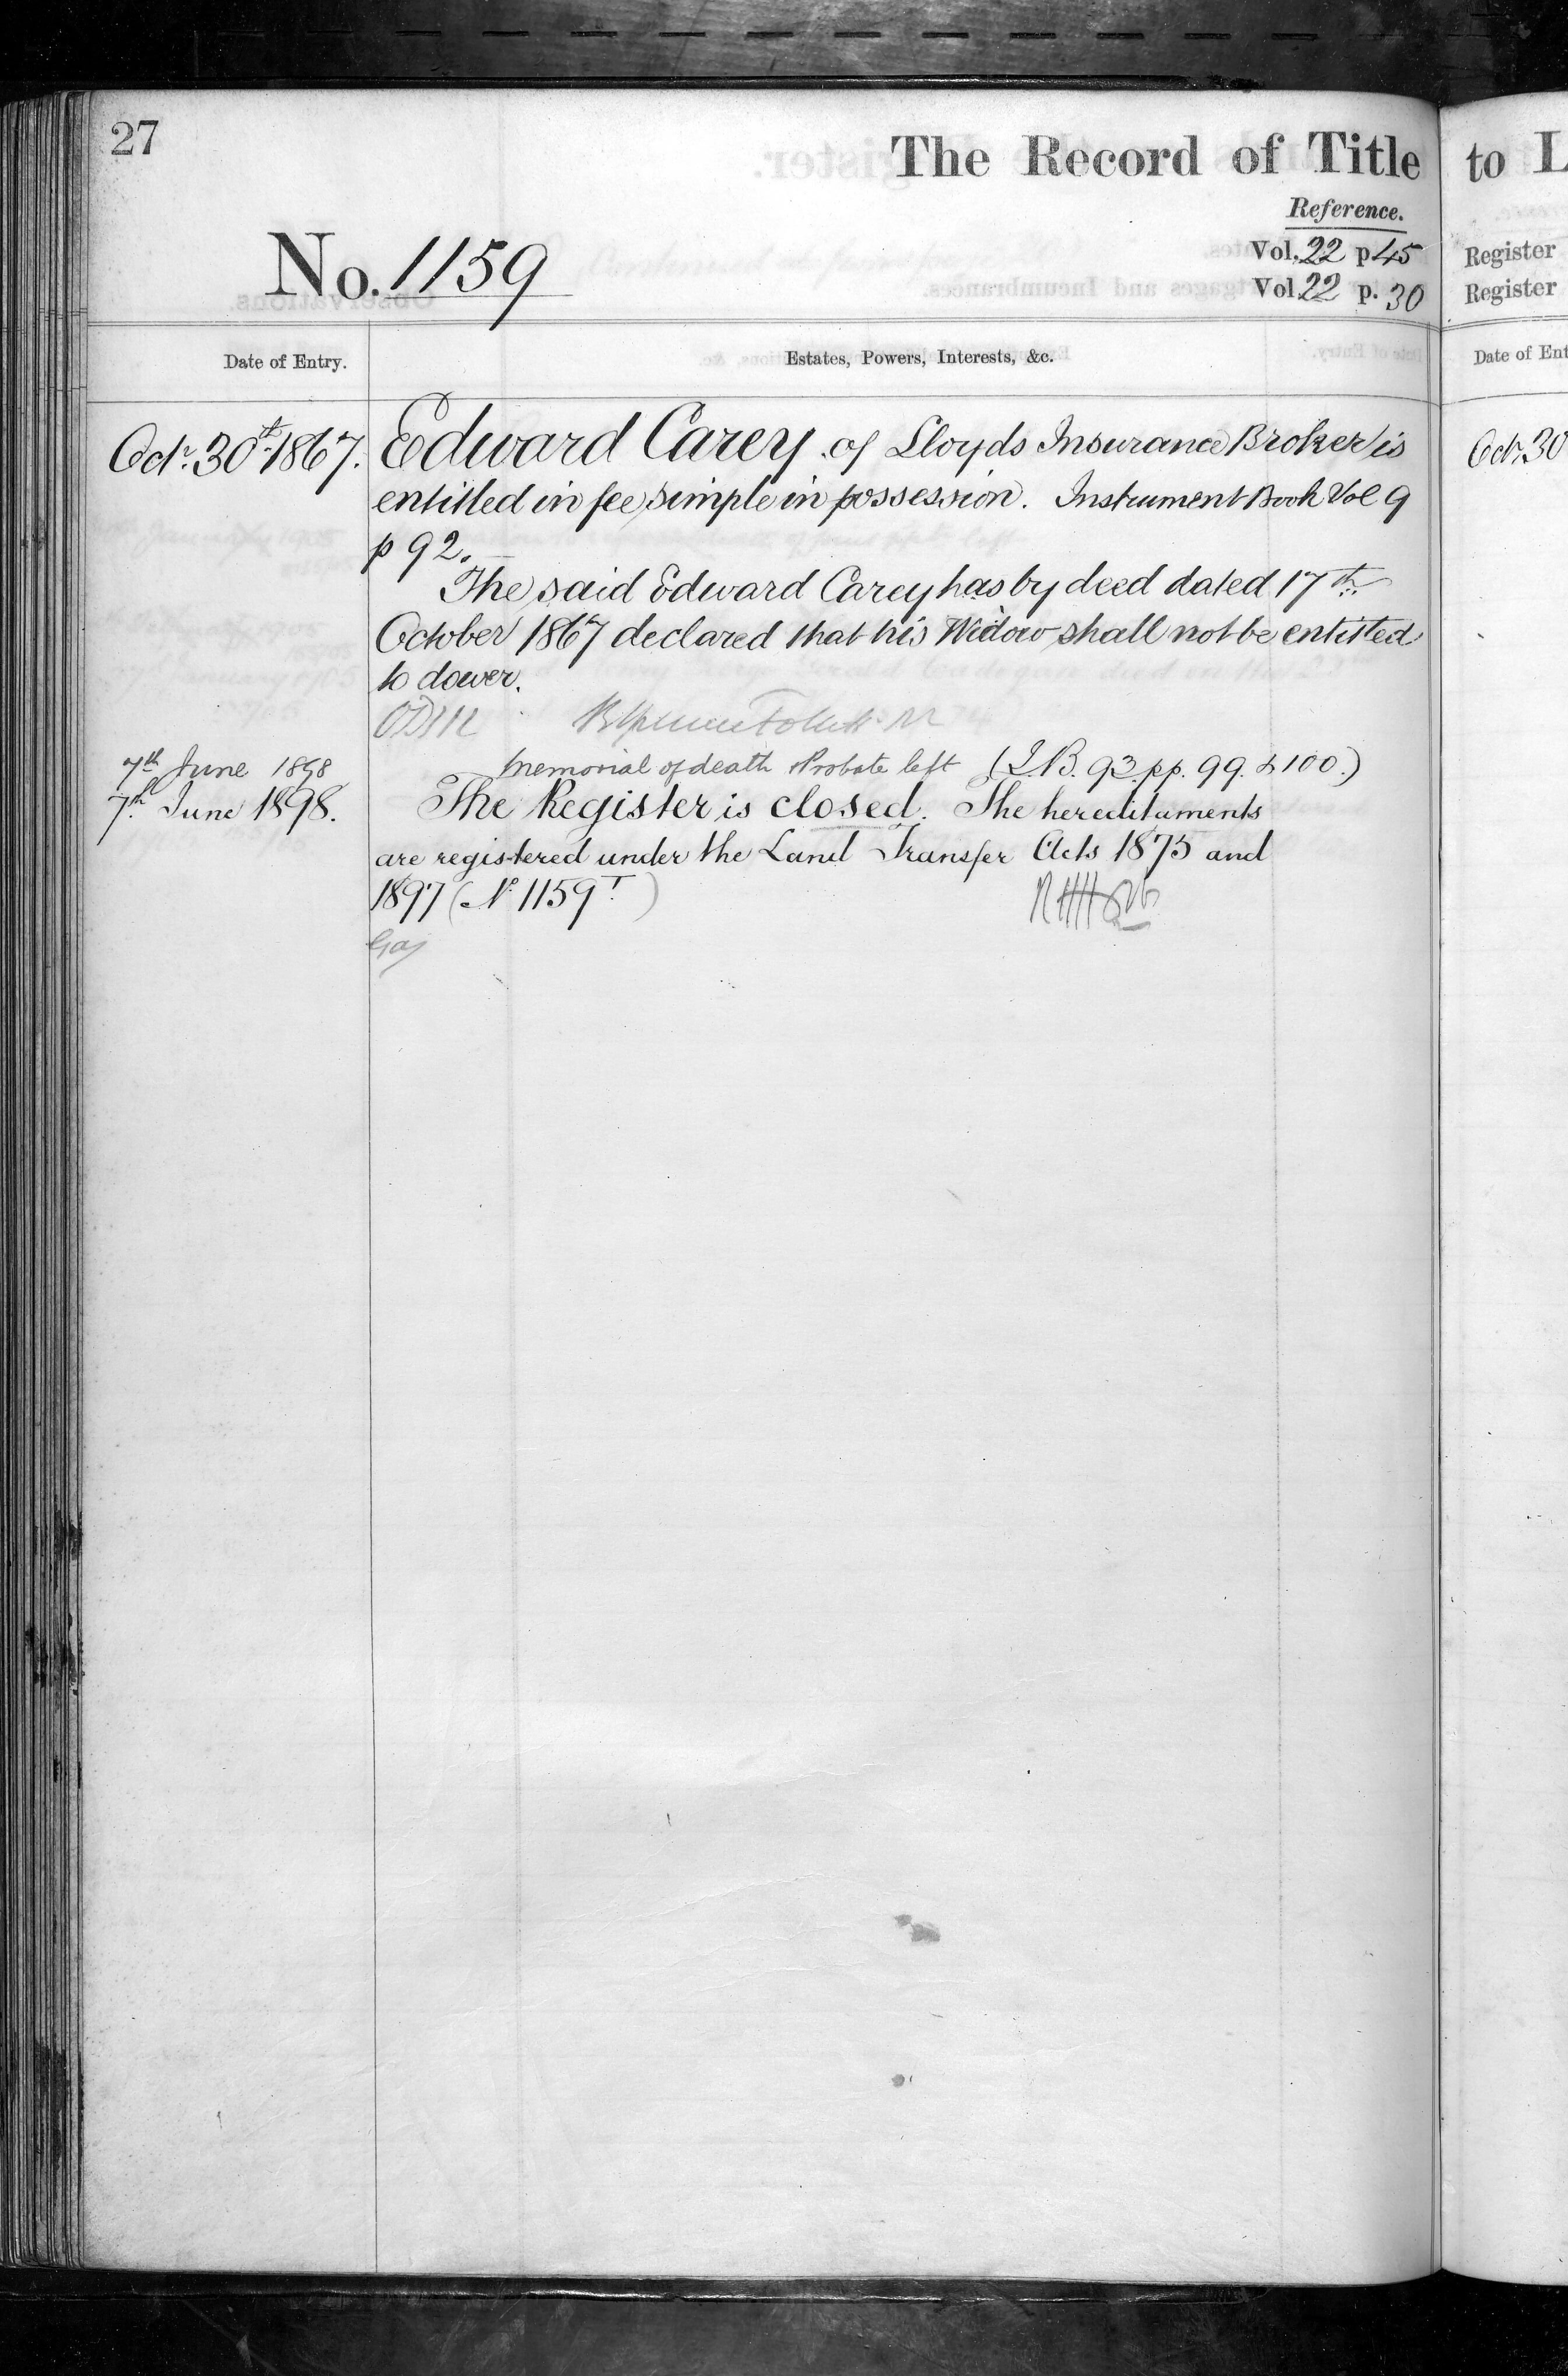 27
The Record of Title
Reference.
No. 1159
Vol. 22 p 45
Vol. 22 p. 30
Date of Entry.
Estates, Powers, Interests, &c.
Octr. 30th 1867.
Edward Carey of Lloyds Insurance Broker is
entitled in fee simple in possession. Instrument Book Vol 9
p 92.
The said Edward Carey has by deed dated 17th
October 1867 declared that his Widow shall not be entitled
to dower.
7th June 1898
Memorial of death & Probate left (I.B. 93. pp. 99. & 100.)
7th June 1898.
The Register is closed. The hereditaments
are registered under the Land Transfer Acts 1875 and
1897 (No 1159T.)
to L
Register
Register
Date of Ent
Octr. 30